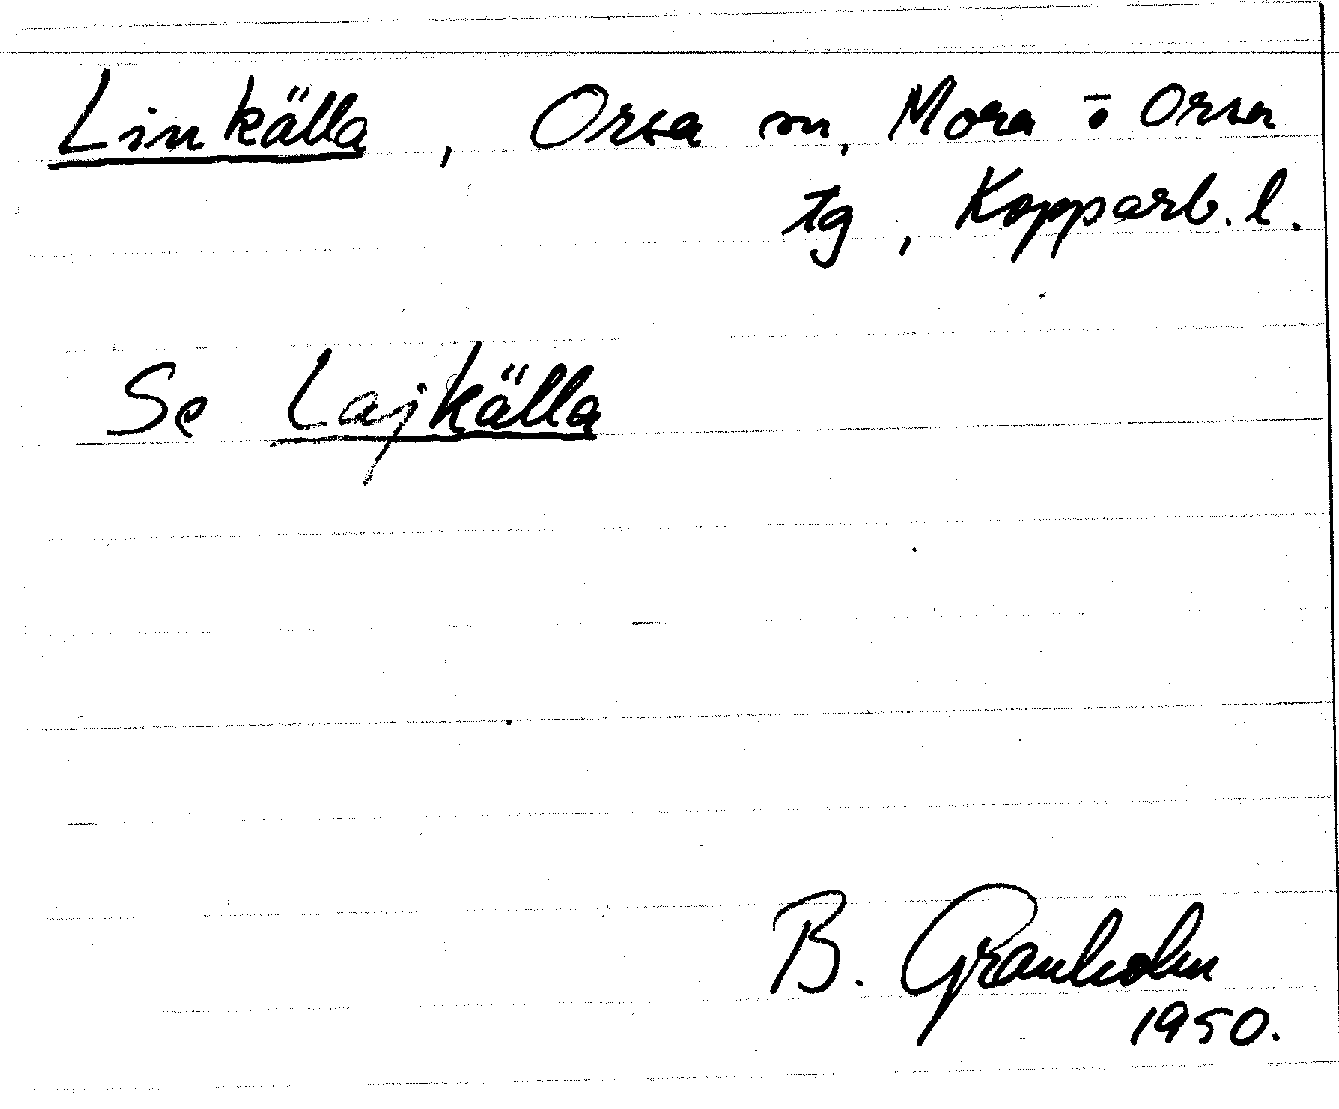 Linkälla, Orsa sn, Mora o Orsa
tg, Kopparb. l.
Se Lajkälla
B. Granholm
1950.